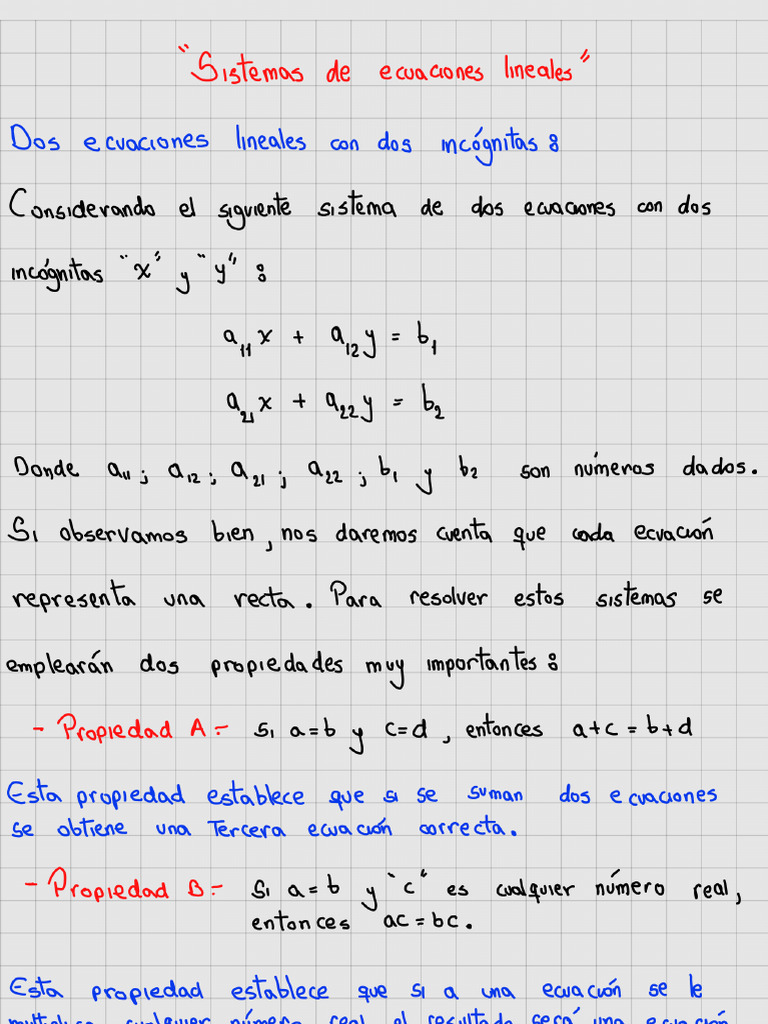 "Sistemas de ecuaciones lineales"
Dos ecuaciones lineales con dos incógnitas:
Considerando el siguiente sistema de dos ecuaciones con dos
incógnitas "x" y "y":
a₁₁x + a₁₂y = b₁
a₂₁x + a₂₂y = b₂
Donde a₁₁; a₁₂; a₂₁; a₂₂; b₁ y b₂ son números dados.
Si observamos bien, nos daremos cuenta que cada ecuación
representa una recta. Para resolver estos sistemas se
emplearán dos propiedades muy importantes:
- Propiedad A:- Si a=b y c=d, entonces a+c = b+d
Esta propiedad establece que si se suman dos ecuaciones
se obtiene una Tercera ecuación correcta.
- Propiedad B:- Si a=b y "c" es cualquier número real,
entonces ac = bc.
Esta propiedad establece que si a una ecuación se le
multiplica cualquier número real el resultado será una ecuación